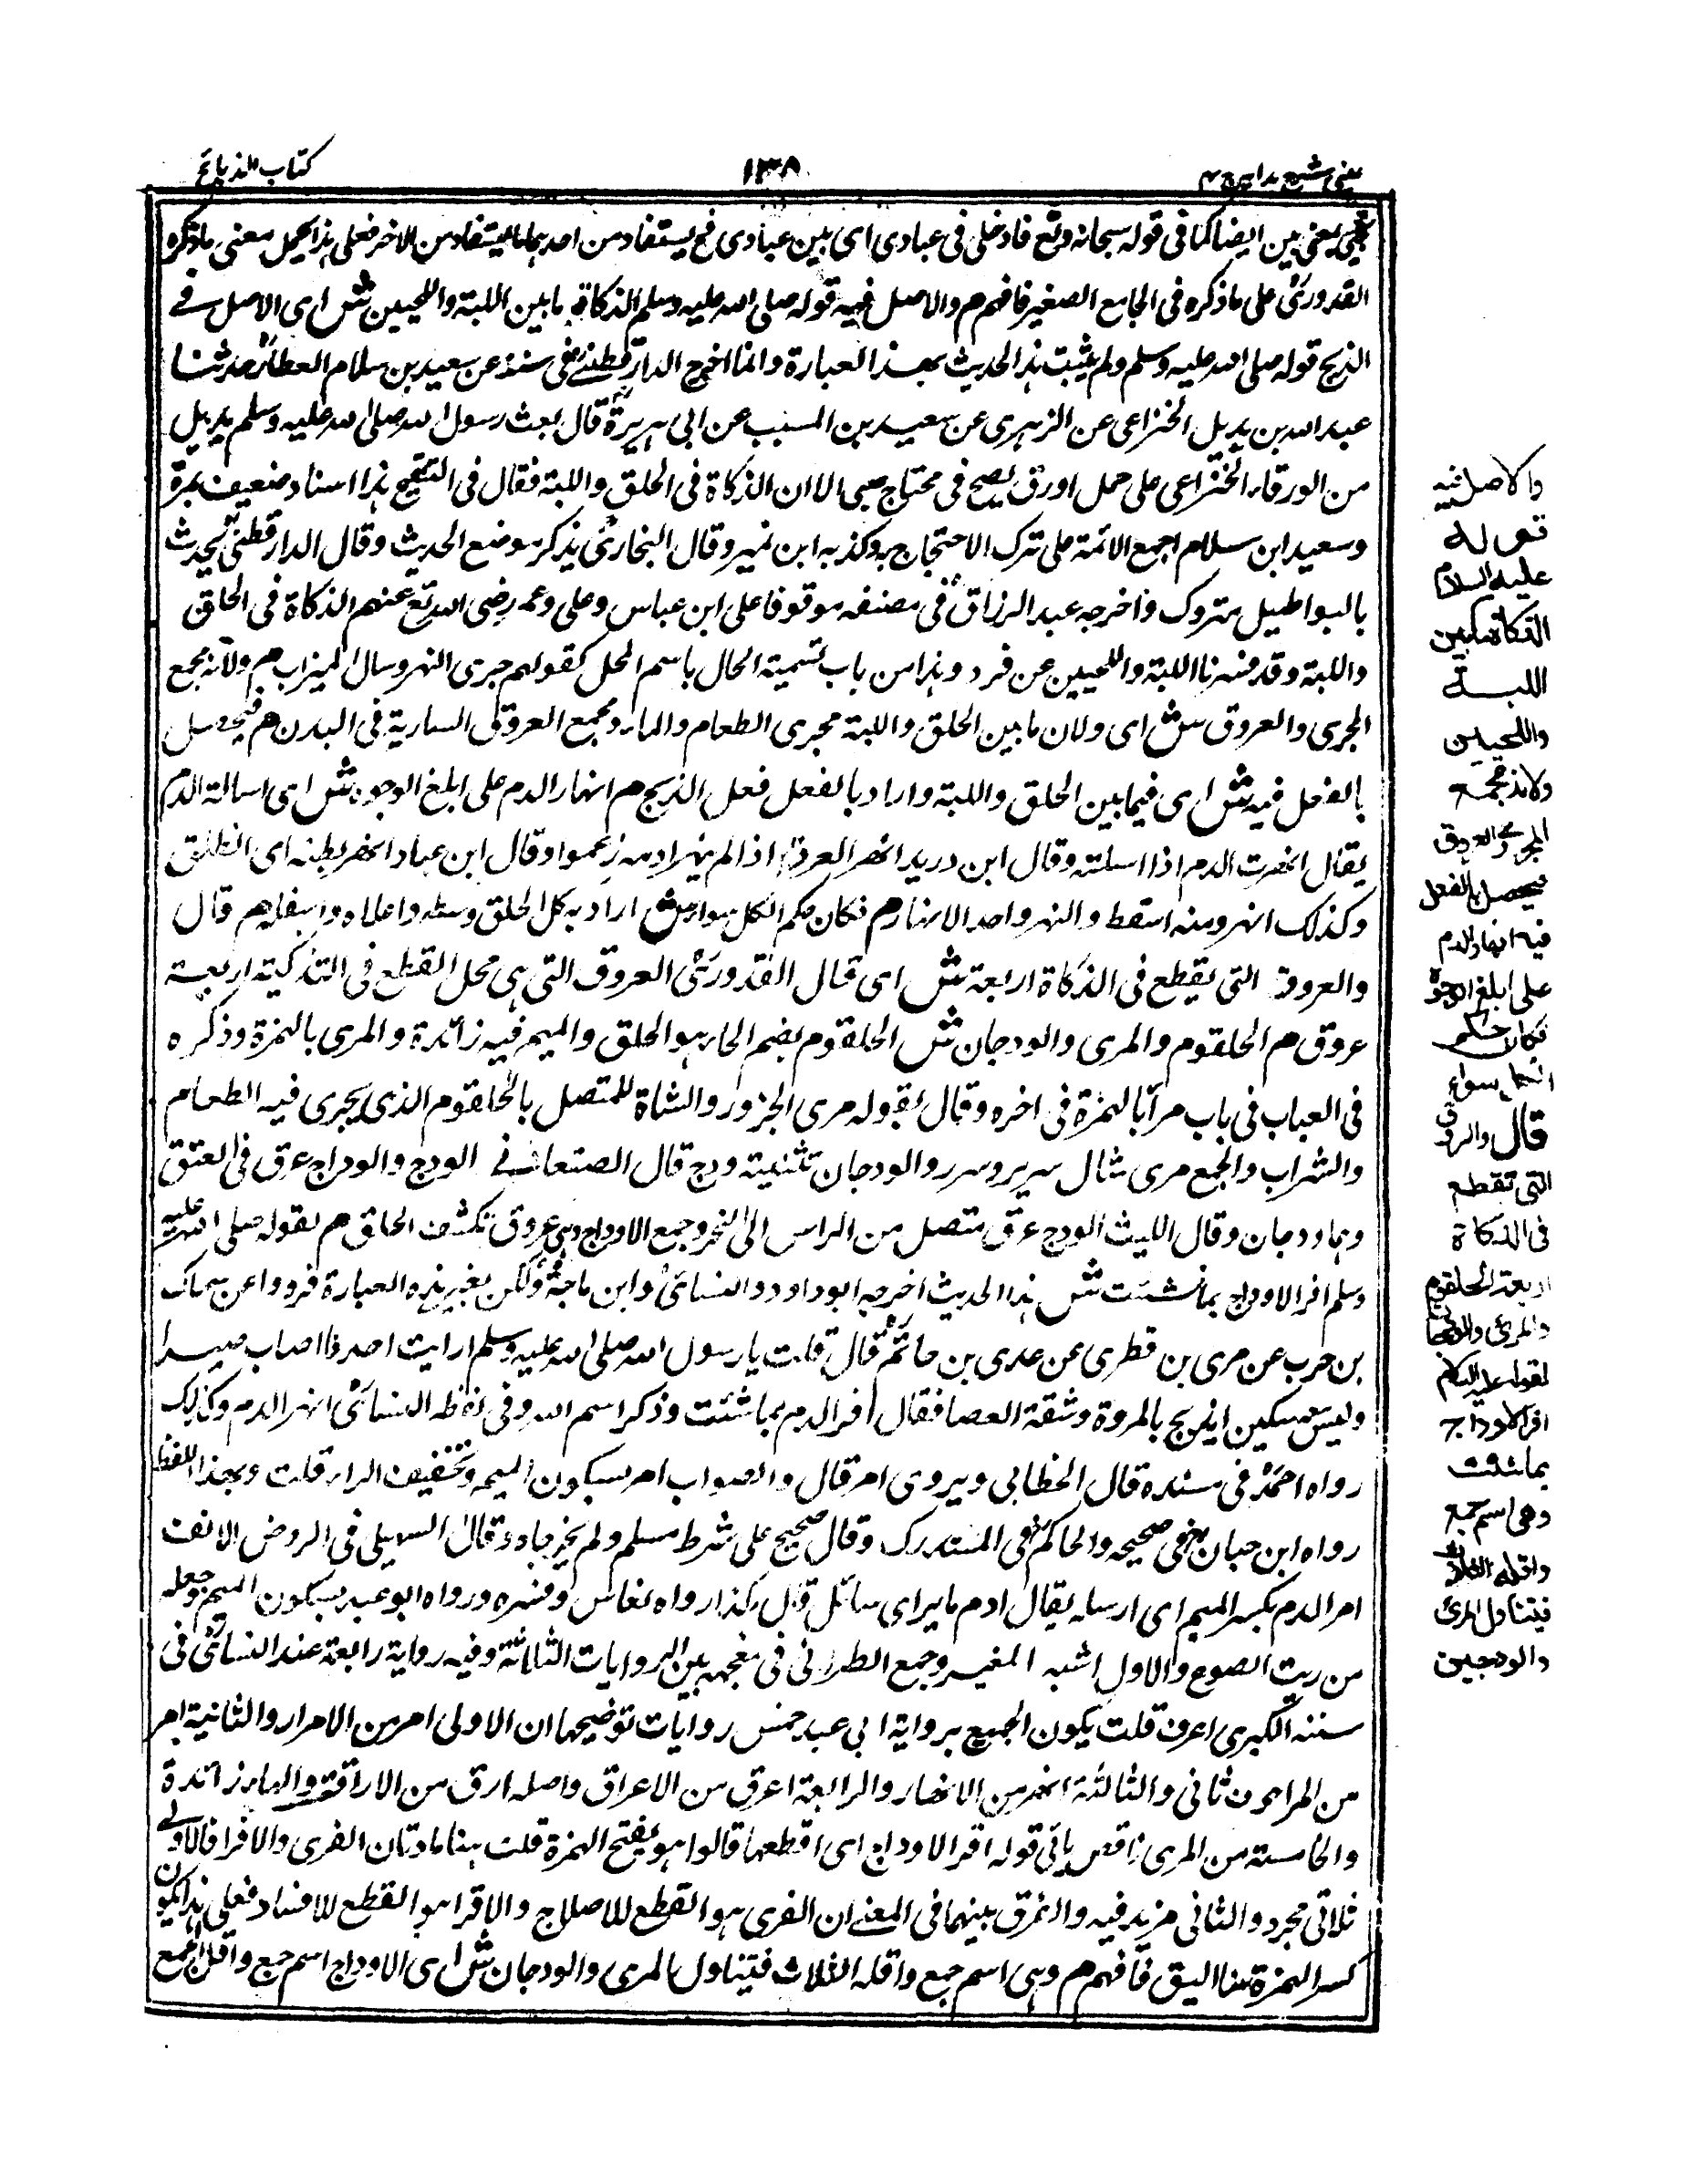 عيني شرح هداية ج ٤
١٣٨
كتاب الذبائح
يجيء بمعنى بين ايضا كما في قوله سبحانه وتع فادخلي في عبادي اى بين عبادى فح يستفاد من احدهما ما يستفاد من الاخر فعلى هذا يحمل معنى ما ذكره
القدورىؒ على ما ذكره فى الجامع الصغير فافهم م والاصل فيه قوله صلى الله عليه وسلم الذكاة ما بين اللبة واللحيين ش اى الاصل فے
الذبح قوله صلى الله عليه وسلم ولم يثبت هذا الحديث بهذ العبارة وانما اخرج الدارقطنىؒ فى سننه عن سعيد بن سلام العطارؒ حدثنا
عبد الله بن بديل الخزاعى عن الزهرى عن سعيد بن المسيب عن ابى هريرةؓ قال بعث رسول الله صلى الله عليه وسلم بديل
من الورقاء الخزاعى على جمل اورق يصيح فى الا ان الذكاة فى الحلق واللبة فقال فى التنقيح هذا اسناد ضعيف بمرة
وسعيد ابن سلام اجمع الائمة على ترك الاحتجاج به وكذبه ابن نمير وقال البخارىؒ يذكر بوضع الحديث وقال الدارقطنىؒ يحدث
بالبواطيل متروك واخرجه عبد الرزاقؒ فى مصنفه موقوفا على ابن عباس وعلى وعمر رضى الله تع عنهم الذكاة فى الحلق
واللبة وقد فسرنا اللبة واللحيين عن فرد وهذا من باب تسمية الحال باسم المحل كقولهم جرى النهر وسال الميزاب م ولانه مجمع
المجرى والعروق ش اى ولان ما بين الحلق واللبة مجرى الطعام والماء ومجمع العروق السارية فى البدن م فيحصل
بالفعل فيه ش اى فيما بين الحلق واللبة واراد بالفعل فعل الذبح م انهار الدم على ابلغ الوجوه ش اى اسالة الدم
يقال انهرت الدم اذا اسلته وقال ابن دريد انهر العرق اذا لم ينهر دمه زعموا وقال ابن عباد انهر بطنه اى انطلق
وكذلك انهر ومنه استقط والنهر واحد الانهار م فكان حكم الكل سواء ش اراد به كل الحلق وسطه واعلاه واسفله م قال
والعروق التى يقطع فى الذكاة اربعة ش اى قال القدورىؒ العروق التى هى محل القطع فى التذكية اربعة
عروق م الحلقوم والمرى والودجان ش الحلقوم بضم الحاء هو الحلق والميم فيه زائدة والمرى بالهمزة وذكره
فى العباب فى باب مرآ بالهمزة فى اخره وقال يقوله مرى الجزور والشاة للمتصل بالحلقوم الذى يجرى فيه الطعام
والشراب والجمع مرى مثال سرير وسرر والودجان تثنية ودج قال الصنعانے الودج والوداج عرق فى العنق
وهما ودجان وقال الليث الودج عرق متصل من الراس الى النحر وجمع الاوداج وهى عروق تكشف الحلق م لقوله صلى الله عليه
وسلم افر الاوداج بما شئت ش هذا الحديث اخرجه ابو داود والنسائىؒ وابن ماجةؒ ولكن بغير هذه العبارة فرووا عن سماك
بن حرب عن مرى بن قطرى عن عدى بن حاتمؓ قال قلت يا رسول الله صلى الله عليه وسلم ارايت احدنا اصاب صيدا
وليس معه سكين ايذبح بالمروة وشقة العصا فقال افر الدم بما شئت وذكر اسم الله وفى لفظ النسائىؒ انهر الدم وكذلك
رواه احمدؒ فى مسنده قال الخطابى ويروى امر قال والصواب امر بسكون الميم وتخفيف الراء قلت وبهذا اللفظ
رواه ابن حبانؒ فى صحيحه والحاكمؒ فى المستدرك وقال صحيح على شرط مسلم ولم يخرجاه وقال السهيلى فى الروض الانف
امر الدم بكسر الميم اى ارسله يقال دم مائر اى سائل قال هكذا رواه نقاس وفسره ورواه ابو عبيد بسكون الميم وجعله
من مريت الضرع والاول اشبه المغير وجمع الطبرانى فى معجمه بين الروايات الثلاثة وفيه رواية رابعة عند النسائىؒ فى
سننه الكبرى اعرق قلت يكون الجميع برواية ابى عبيد خمس روايات توضيحها ان الاولى امر من الامرار والثانية امر
من المراجوف ثانى والثالثة انهر من الانهار والرابعة اعرق من الاعراق واصله ارق من الاراقة والهاء زائدة
والخامسة من المرى ناقص يائى قوله افر الاوداج اى اقطعها قالوا هو بفتح الهمزة قلت هنا مادتان الفرى والافرا فالاولے
ثلاثى مجرد والثانى مزيد فيه والفرق بينهما فى المعنے ان الفرى هو القطع للاصلاح والافرا هو القطع للافساد فعلى هذا يكون
كسر الهمزة هنا اليق فافهم م وهى اسم جمع واقله الثلاث فتيناول المرى والودجان ش اى الاوداج اسم جمع واقل الجمع
والاصل فيه
قوله
عليه السلام
الذكاة ما بين
اللبة
واللحيين
ولانه مجمع
المجرى والعروق
فيحصل بالفعل
فيه انهار الدم
على ابلغ الوجوه
فكان حكم
الكل سواء
قال والعروق
التى تقطع
فى الذكاة
اربعة الحلقوم
والمرئ والودجان
لقوله عليه السلام
افر الاوداج
بما شئت
وهى اسم جمع
واقله الثلاث
فيتناول المرئ
والودجين